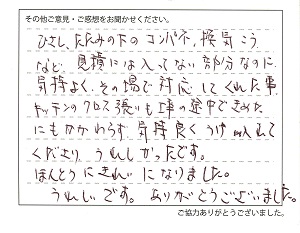 その他ご意見・ご感想をお聞かせください。
ひさし、たたみの下のコンパネ、換気こう
など、見積には入ってない部分なのに、
気持よく、その場で対応してくれた事、
キッチンのクロス張りも工事の途中できめた
にもかかわらず、気持良くうけ入れて
くださり、うれしかったです。
ほんとうにきれいになりました。
うれしいです。ありがとうございました。
ご協力ありがとうございました。